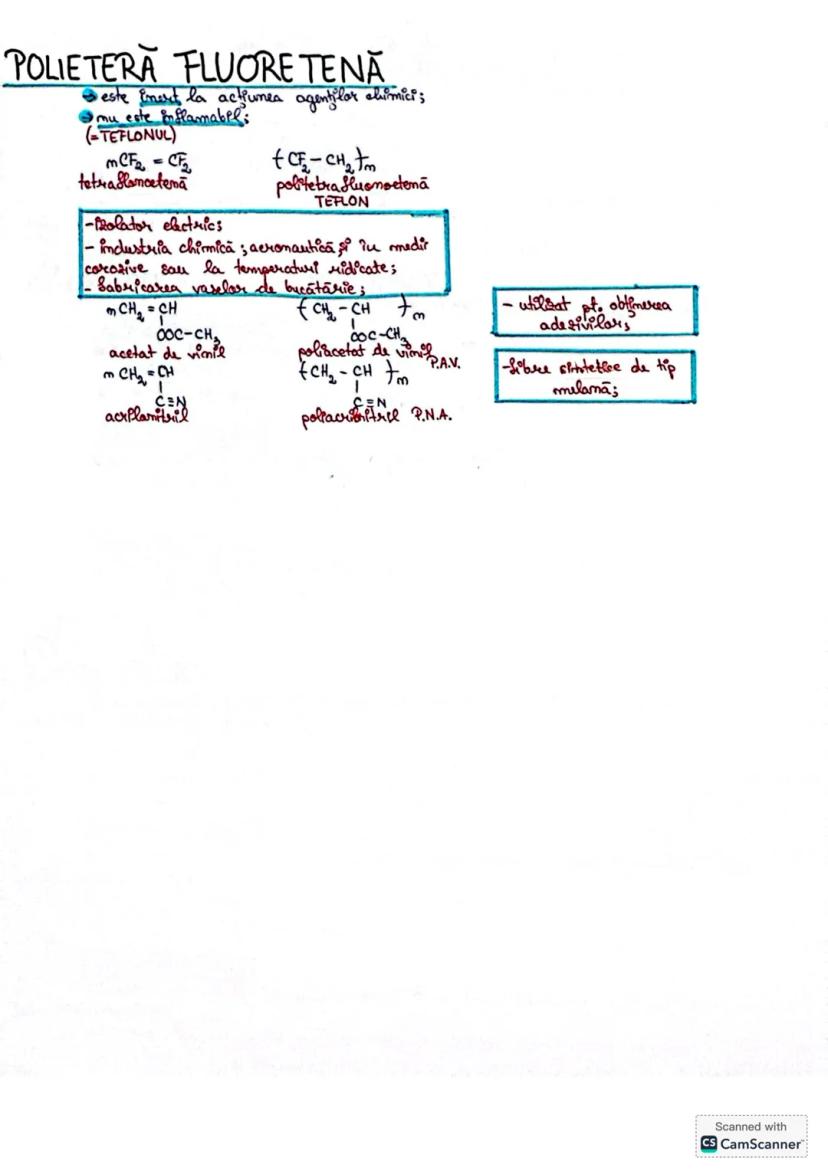 POLIETERĂ FLUORETENĂ
este inert la acțiunea agenților chimici;
nu este inflamabil;
(=TEFLONUL)
nCF₂ = CF₂
{CF₂-CH₂}n
tetrafluoretenă
politetrafluoroetenă
TEFLON
-izolator electric;
- industria chimică; aeronautică și în medii
corozive sau la temperaturi ridicate;
- fabricarea vaselor de bucătărie;
nCH₂ = CH
OOC-CH₃
acetat de vinil
{CH₂ - CH }n
OOC-CH₃
poliacetat de vinil P.A.V.
- utilizat pt. obținerea
adezivilor;
n CH₂ = CH
C≡N
{CH₂ - CH }n
C≡N
P.N.A.
-fibre sintetice de tip
melană;
Scanned with
CS CamScanner